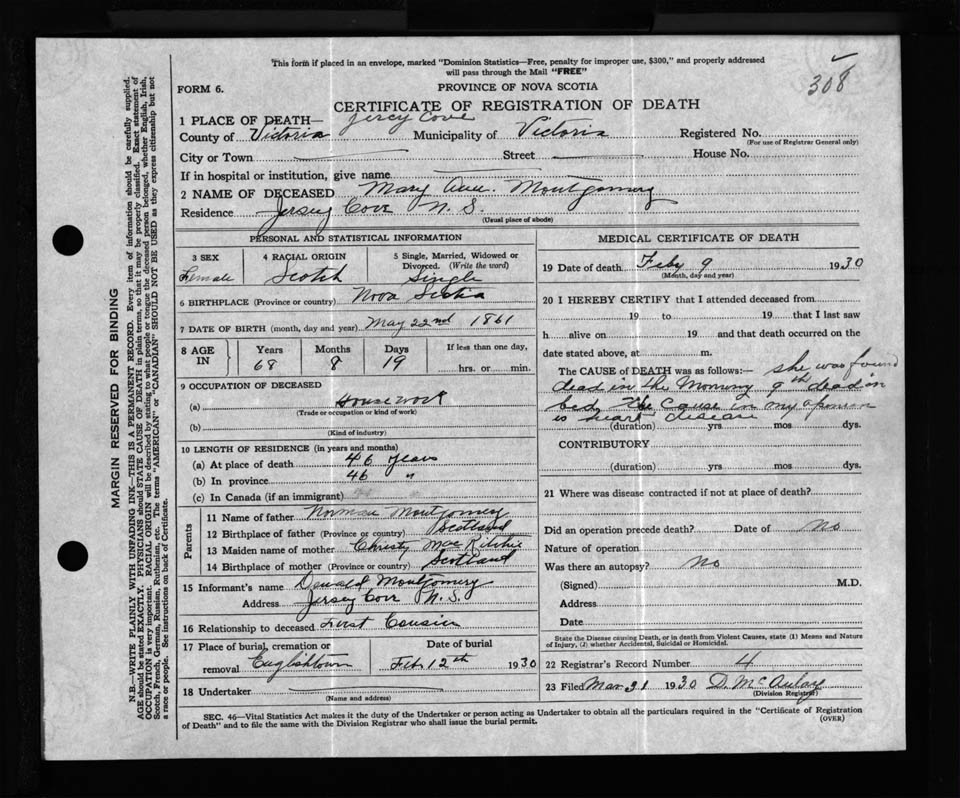 This form if placed in an envelope, marked "Dominion Statistics—Free, penalty for improper use, $300," and properly addressed
will pass through the Mail "FREE"
308
FORM 6.
PROVINCE OF NOVA SCOTIA
CERTIFICATE OF REGISTRATION OF DEATH
1 PLACE OF DEATH— Jersey Cove
County of Victoria Municipality of Victoria Registered No.
(For use of Registrar General only)
City or Town Street House No.
If in hospital or institution, give name
2 NAME OF DECEASED Mary Ann. Montgomery
Residence Jersey Cove N. S.
(Usual place of abode)
PERSONAL AND STATISTICAL INFORMATION
3 SEX 4 RACIAL ORIGIN 5 Single, Married, Widowed or
Divorced. (Write the word)
Female Scotch Single
6 BIRTHPLACE (Province or country) Nova Scotia
7 DATE OF BIRTH (month, day and year) May 22nd 1861
8 AGE IN Years Months Days If less than one day,
68 8 19 hrs. or min.
9 OCCUPATION OF DECEASED
(a) Housework
(Trade or occupation or kind of work)
(b)
(Kind of industry)
10 LENGTH OF RESIDENCE (in years and months)
(a) At place of death 46 years
(b) In province 46 "
(c) In Canada (if an immigrant)
Parents
11 Name of father Norman Montgomery
12 Birthplace of father (Province or country) Scotland
13 Maiden name of mother Christy MacRitchie
14 Birthplace of mother (Province or country) Scotland
15 Informant's name Donald Montgomery
Address Jersey Cove N. S.
16 Relationship to deceased First Cousin
17 Place of burial, cremation or Date of burial
removal Englishtown Feb 12th 1930
18 Undertaker
(Name and address)
MEDICAL CERTIFICATE OF DEATH
19 Date of death Feby 9 1930
(Month, day and year)
20 I HEREBY CERTIFY that I attended deceased from
19 to 19 that I last saw
h alive on 19 and that death occurred on the
date stated above, at m.
The CAUSE of DEATH was as follows:— she was found
dead in the Morning 9th dead in
bed, the cause in my opinion
is heart disease
(duration) yrs mos dys.
CONTRIBUTORY
(duration) yrs mos dys.
21 Where was disease contracted if not at place of death?
Did an operation precede death? Date of no
Nature of operation
Was there an autopsy? no
(Signed) M.D.
Address
Date
State the Disease causing Death, or in death from Violent Causes, state (1) Means and Nature
of Injury, (2) whether Accidental, Suicidal or Homicidal.
22 Registrar's Record Number 4
23 Filed Mar 31 1930 D. McAulay
(Division Registrar)
SEC. 46—Vital Statistics Act makes it the duty of the Undertaker or person acting as Undertaker to obtain all the particulars required in the "Certificate of Registration
of Death" and to file the same with the Division Registrar who shall issue the burial permit.
(OVER)
MARGIN RESERVED FOR BINDING
N.B.—WRITE PLAINLY WITH UNFADING INK—THIS IS A PERMANENT RECORD. Every item of information should be carefully supplied.
AGE should be stated EXACTLY. PHYSICIANS should STATE CAUSE OF DEATH in plain terms, so that it may be properly classified. Exact statement of
OCCUPATION is very important. RACIAL ORIGIN will be described by stating to what people or tongue the deceased person belonged, whether English, Irish,
Scotch, French, German, Russian, Ruthenian, etc. The terms "AMERICAN" or "CANADIAN" SHOULD NOT BE USED as they express citizenship but not
a race or people. See instructions on back of Certificate.